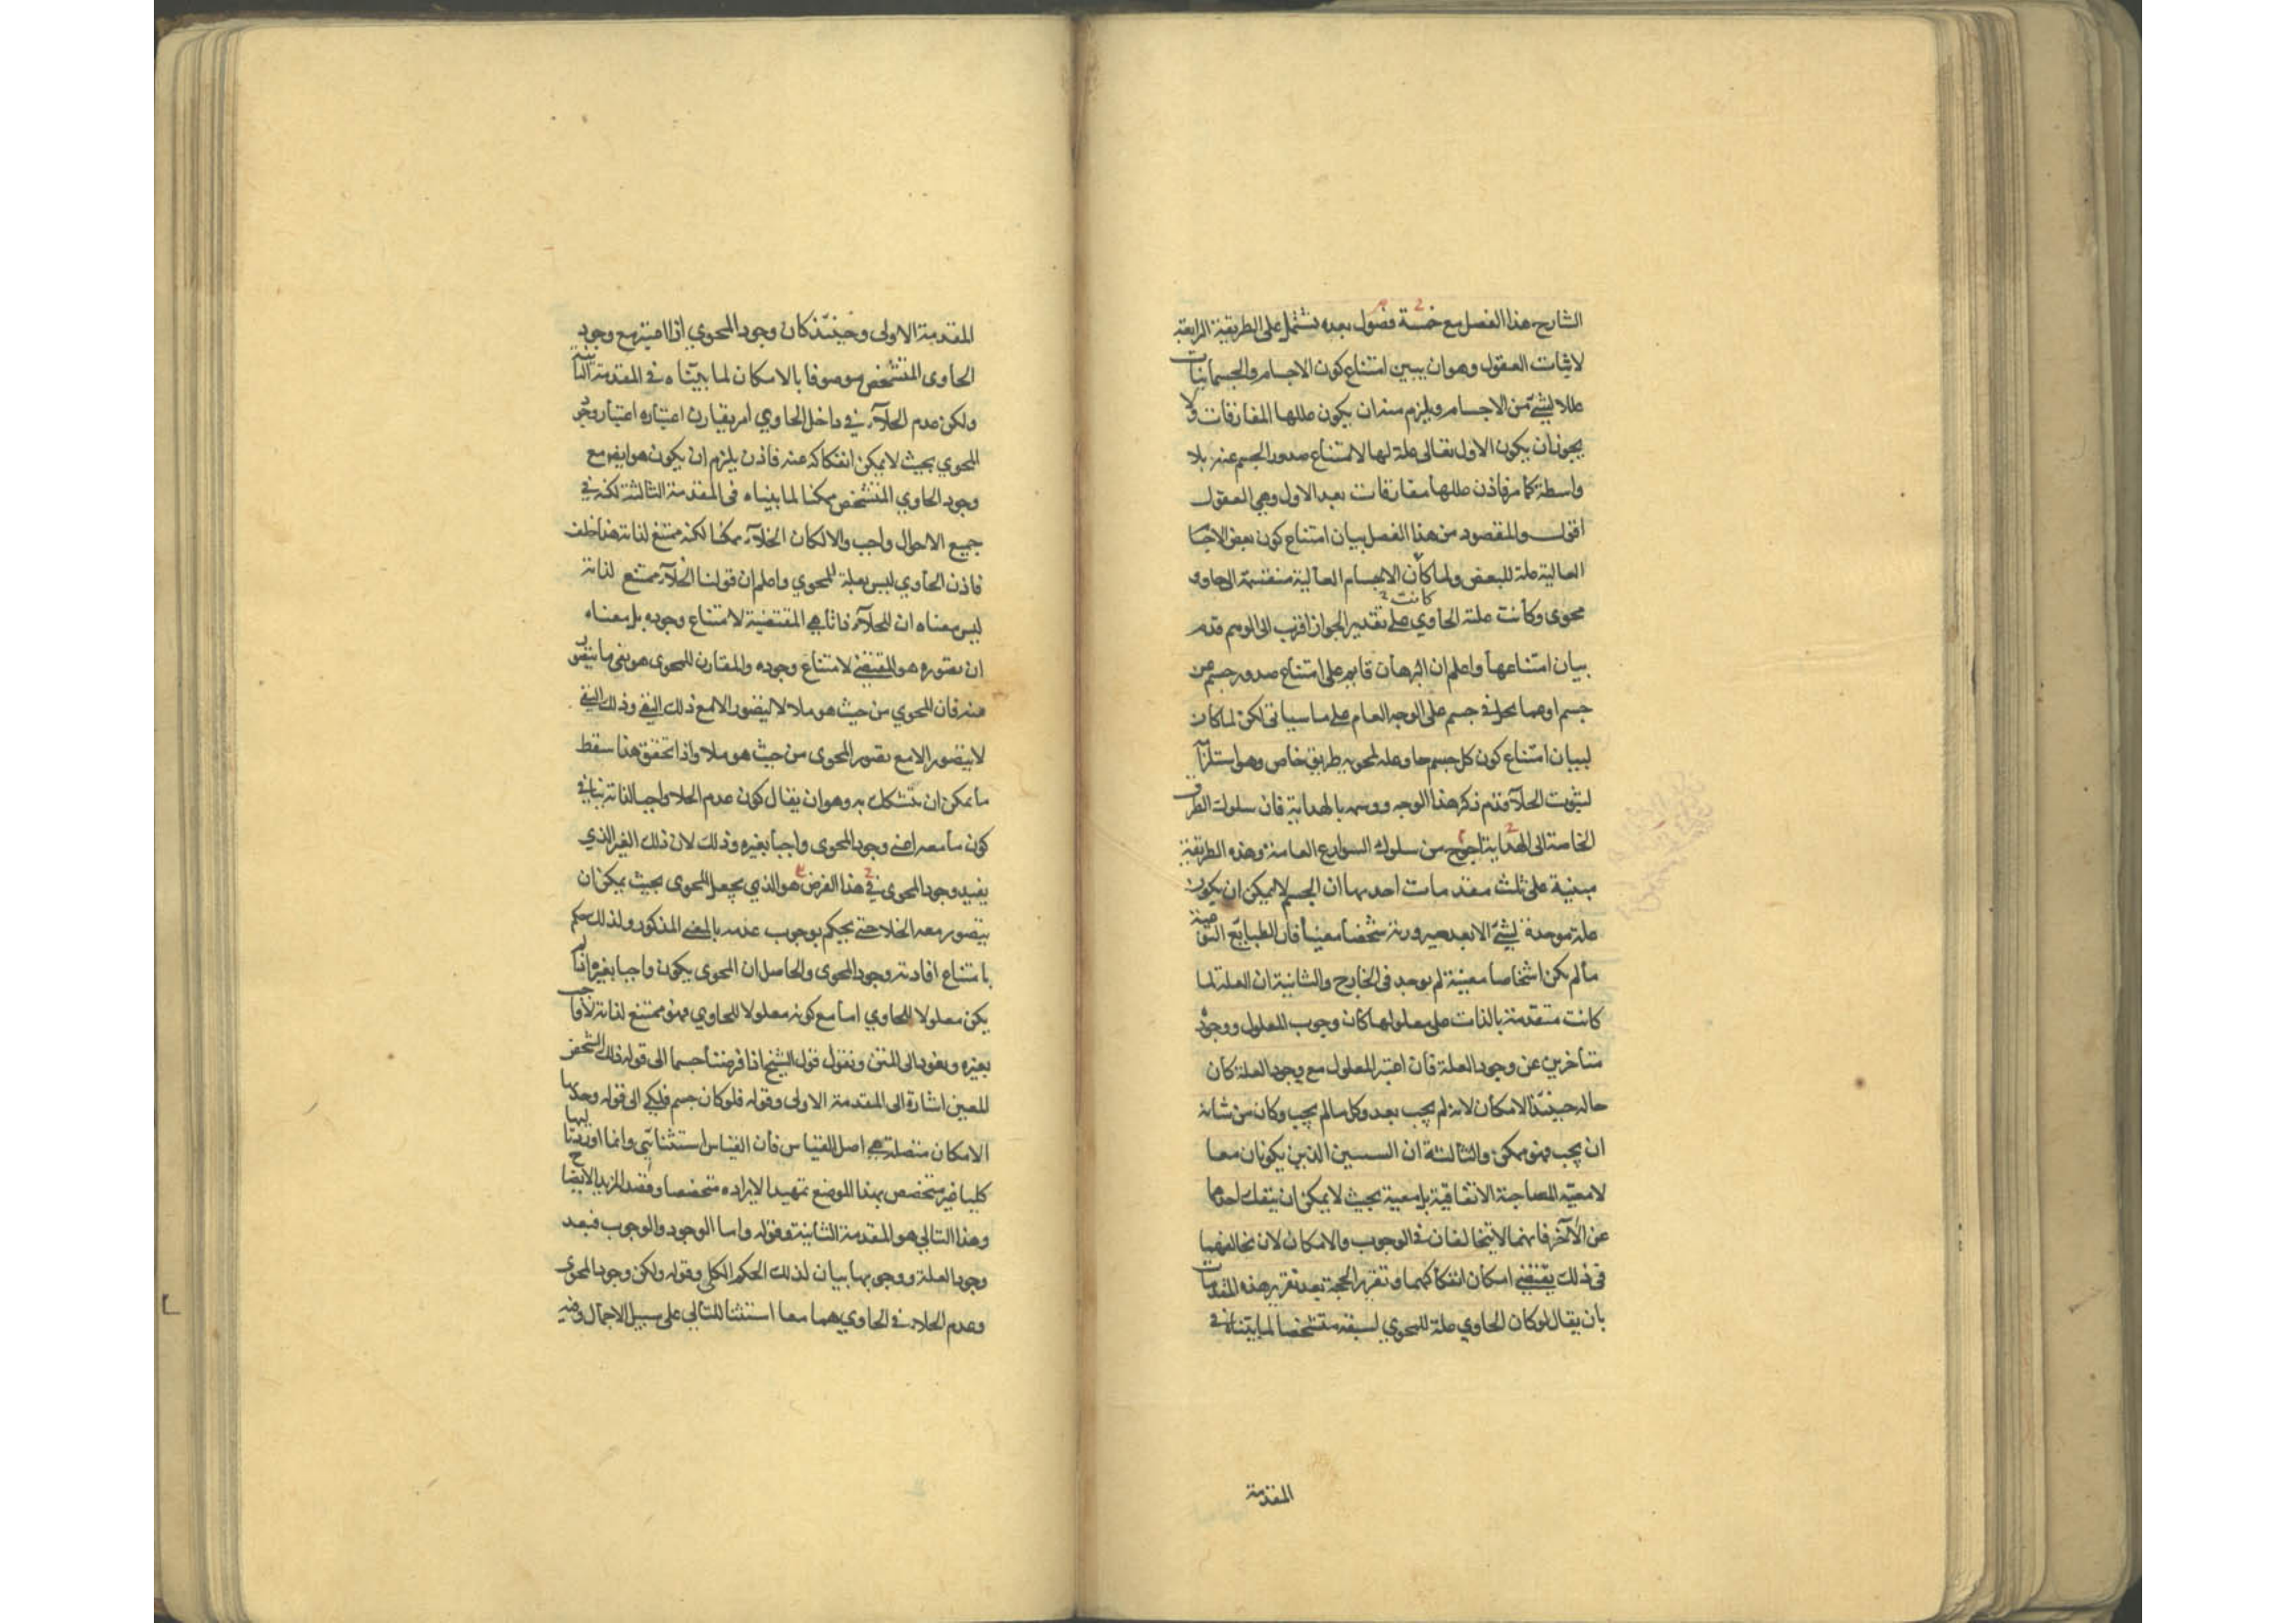 الشارح هذا الفصل مع خمسة فصول بعده تشتمل على الطريقة الرابعة
لاثبات العقول وهو ان يبين امتناع كون الاجسام والجسمانيات
عللا لشئ من الاجسام ويلزم منه ان يكون عللها المفارقات ولا
يجوز ان يكون الاول تعالى علة لها لامتناع صدور الجسم عنه بلا
واسطة كما مر فاذن عللها مفارقات بعد الاول وهي العقول
اقول والمقصود من هذا الفصل بيان امتناع كون بعض الاجسا
العالية علة للبعض ولما كان الاجسام العالية منقسمة الى حاو و
كانت
محوى وكانت علته الحاوي على تقدير الجواز اقرب الى الوهم قدم
بيان امتناعها واعلم ان البرهان قايم على امتناع صدور جسم عن
جسم او عما يحل في جسم على الوجه العام على ما سياتى لكن لما كان
لبيان امتناع كون كل جسم حاو علة لمحويه طريق خاص وهو استلزام
لثبوت الخلآء قدم ذكر هذا الوجه ووسمه بالهداية فان سلوك الطرق
الخاصة الى الهداية احوج من سلوك الشوارع العامة وهذه الطريقة
مبنية على ثلث مقدمات احديها ان الجسم لا يمكن ان يكون
علة موجدة لشئ الا بعد صيرورته شخصا معينا فان الطبايع النوعية
ما لم يكن اشخاصا معينة لم يوجد فى الخارج والثانية ان العلة لما
كانت متقدمة بالذات على معلولها كان وجوب المعلول ووجوده
متأخرين عن وجود العلة فان اعتبر المعلول مع وجود العلة كان
حاله حينئذ الامكان لانه لم يجب بعد وكل ما لم يجب وكان من شانه
ان يجب فهو ممكن والثالثة ان الشيئين الذين يكونان معا
لا معية المصاحبة الاتفاقية بل معية بحيث لا يمكن ان ينفك احدهما
عن الآخر فانهما لا يتخالفان فى الوجوب والامكان لان تخالفهما
فى ذلك يقتضي امكان انفكاكهما وتقرير الحجة بعد تقرير هذه المقدمات
بان يقال لو كان الحاوي علة للمحوي لسبقه متشخصا لما بيناه في
المقدمة
المقدمة الاولى وحينئذ كان وجود المحوي اذا اعتبر مع وجود
الحاوى المتشخص موصوفا بالامكان لما بيناه فى المقدمة الثانية
ولكن عدم الخلآء في داخل الحاوي امر يقارن اعتباره اعتبار وجود
المحوي بحيث لا يمكن انفكاكه عنه فاذن يلزم ان يكون هو ايض مع
وجود الحاوي المتشخص ممكنا لما بيناه فى المقدمة الثالثة لكنه في
جميع الاحوال واجب والا لكان الخلآء ممكنا لكنه ممتنع لذاته هذا خلف
فاذن الحاوي ليس بعلة للمحوي واعلم ان قولنا الخلآء ممتنع لذاته
ليس معناه ان للخلآء ذاتا هي المقتضية لامتناع وجوده بل معناه
ان تصوره هو المقتضي لامتناع وجوده والمقارن للمحوى هو نفى ما يتصور
منه فان المحوي من حيث هو ملا لا يتصور الا مع ذلك النفي وذلك النفي
لا يتصور الا مع تصور المحوى من حيث هو ملا واذا تحقق هذا سقط
ما يمكن ان يتشكك به وهو ان يقال كون عدم الخلا واجبا لذاته ينافي
كون ما معه اعني وجود المحوى واجبا بغيره وذلك لان ذلك الغير الذي
يفيد وجود المحوى في هذا الفرض هو الذي يجعل المحوى بحيث يمكن ان
يتصور معه الخلا حتى يحكم بوجوب عدمه بالمعنى المذكور ولذلك حكم
بامتناع افادته وجود المحوى والحاصل ان المحوى يكون واجبا بغيره اذا لم
يكن معلولا للحاوي اما مع كونه معلولا للحاوي فهو ممتنع لذاته لا واجب
بغيره ونعود الى المتن ونقول قول الشيخ اذا فرضنا جسما الى قوله ذلك الشخص
المعين اشارة الى المقدمة الاولى وقوله فلو كان جسم فلكي الى قوله وجدتها
الامكان متصلة هي اصل القياس فان القياس استثنائي وانما اورد تاليها
كليا غير متخصص بهذا الموضع تمهيدا لايراده متخصصا وقصدا لمزيد الايضاح
وهذا التالي هو المقدمة الثانية وقوله واما الوجود والوجوب فبعد
وجود العلة ووجوبها بيان لذلك الحكم الكلي وقوله ولكن وجود المحوى
وعدم الخلاء في الحاوي هما معا استثنا للتالي على سبيل الاجمال وفيه